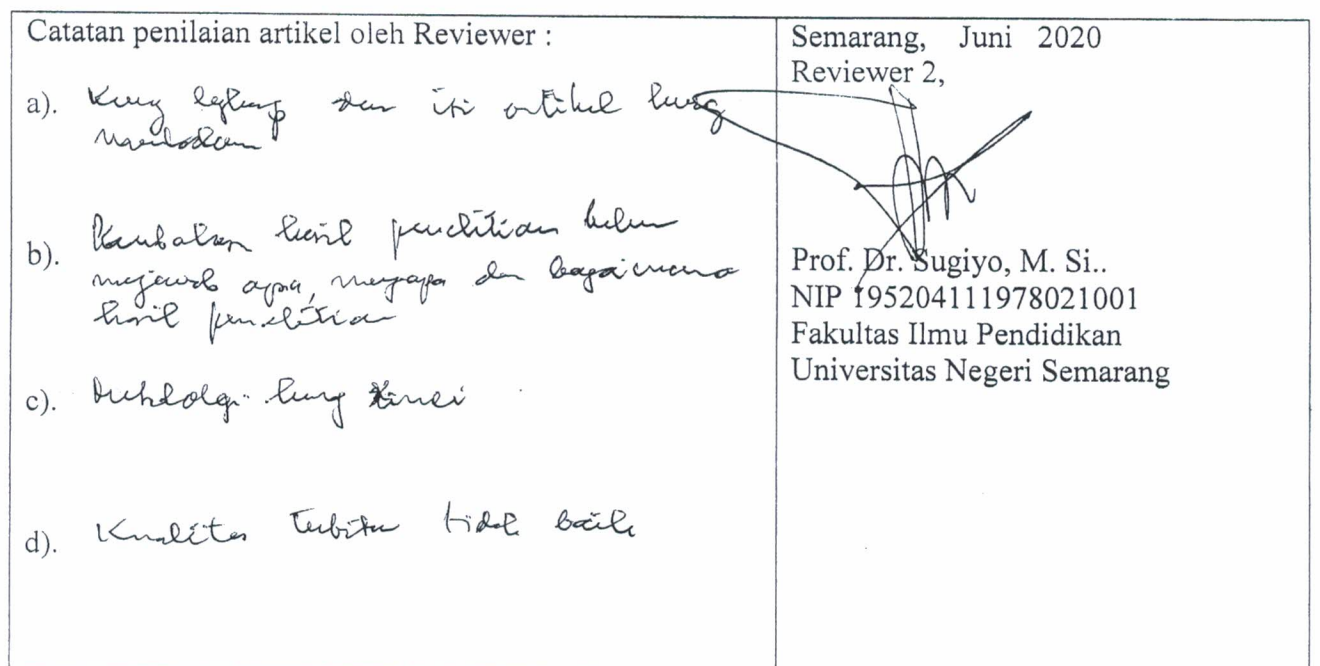 Catatan penilaian artikel oleh Reviewer :
a). Kurang lengkap dan isi artikel kurang
b). hasil penelitian belum
menjawab apa, mengapa dan bagaimana
hasil penelitian
c). kurang rinci
d). Kualitas terbitan tidak baik
Semarang, Juni 2020
Reviewer 2,
Prof. Dr. Sugiyo, M. Si..
NIP 195204111978021001
Fakultas Ilmu Pendidikan
Universitas Negeri Semarang